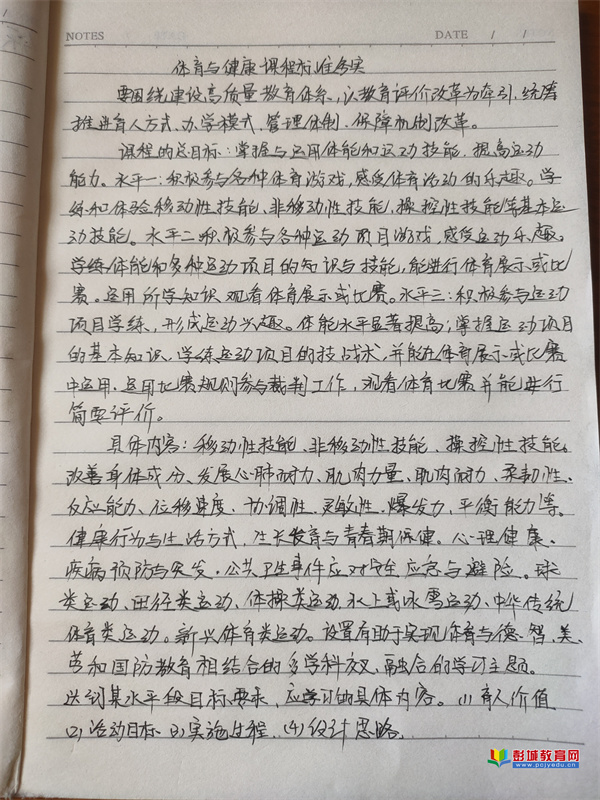 NOTES DATE / /
体育与健康课程标准务实
要围绕建设高质量教育体系，以教育评价改革为牵引，统筹
推进育人方式、办学模式、管理体制、保障机制改革。
课程的总目标：掌握与运用体能和运动技能，提高运动
能力。水平一：积极参与各种体育游戏，感受体育活动的乐趣。学
练和体验移动性技能、非移动性技能，操控性技能等基本运
动技能。水平二积极参与各种运动项目游戏，感受运动乐趣。
学练体能和多种运动项目的知识与技能，能进行体育展示或比
赛。运用所学知识观看体育展示或比赛。水平三：积极参与运动
项目学练，形成运动兴趣。体能水平显著提高；掌握运动项目
的基本知识、学练运动项目的技战术，并能在体育展示或比赛
中运用，运用比赛规则参与裁判工作，观看体育比赛并能进行
简要评价。
具体内容：移动性技能、非移动性技能、操控性技能。
改善身体成分、发展心肺耐力、肌肉力量、肌肉耐力、柔韧性、
反应能力、位移速度、协调性、灵敏性、爆发力、平衡能力等。
健康行为与生活方式，生长发育与青春期保健。心理健康、
疾病预防与突发·公共卫生事件应对安全应急与避险。球
类运动、田径类运动、体操类运动、水上或冰雪运动、中华传统
体育类运动。新兴体育类运动。设置有助于实现体育与德、智、美、
劳和国防教育相结合的多学科交叉、融合的学习主题。
达到某水平级目标要求，应学习的具体内容。(1)育人价值
(2)活动目标 (3)实施过程、(4)设计思路，
彭城教育网
www.pcjyedu.cn